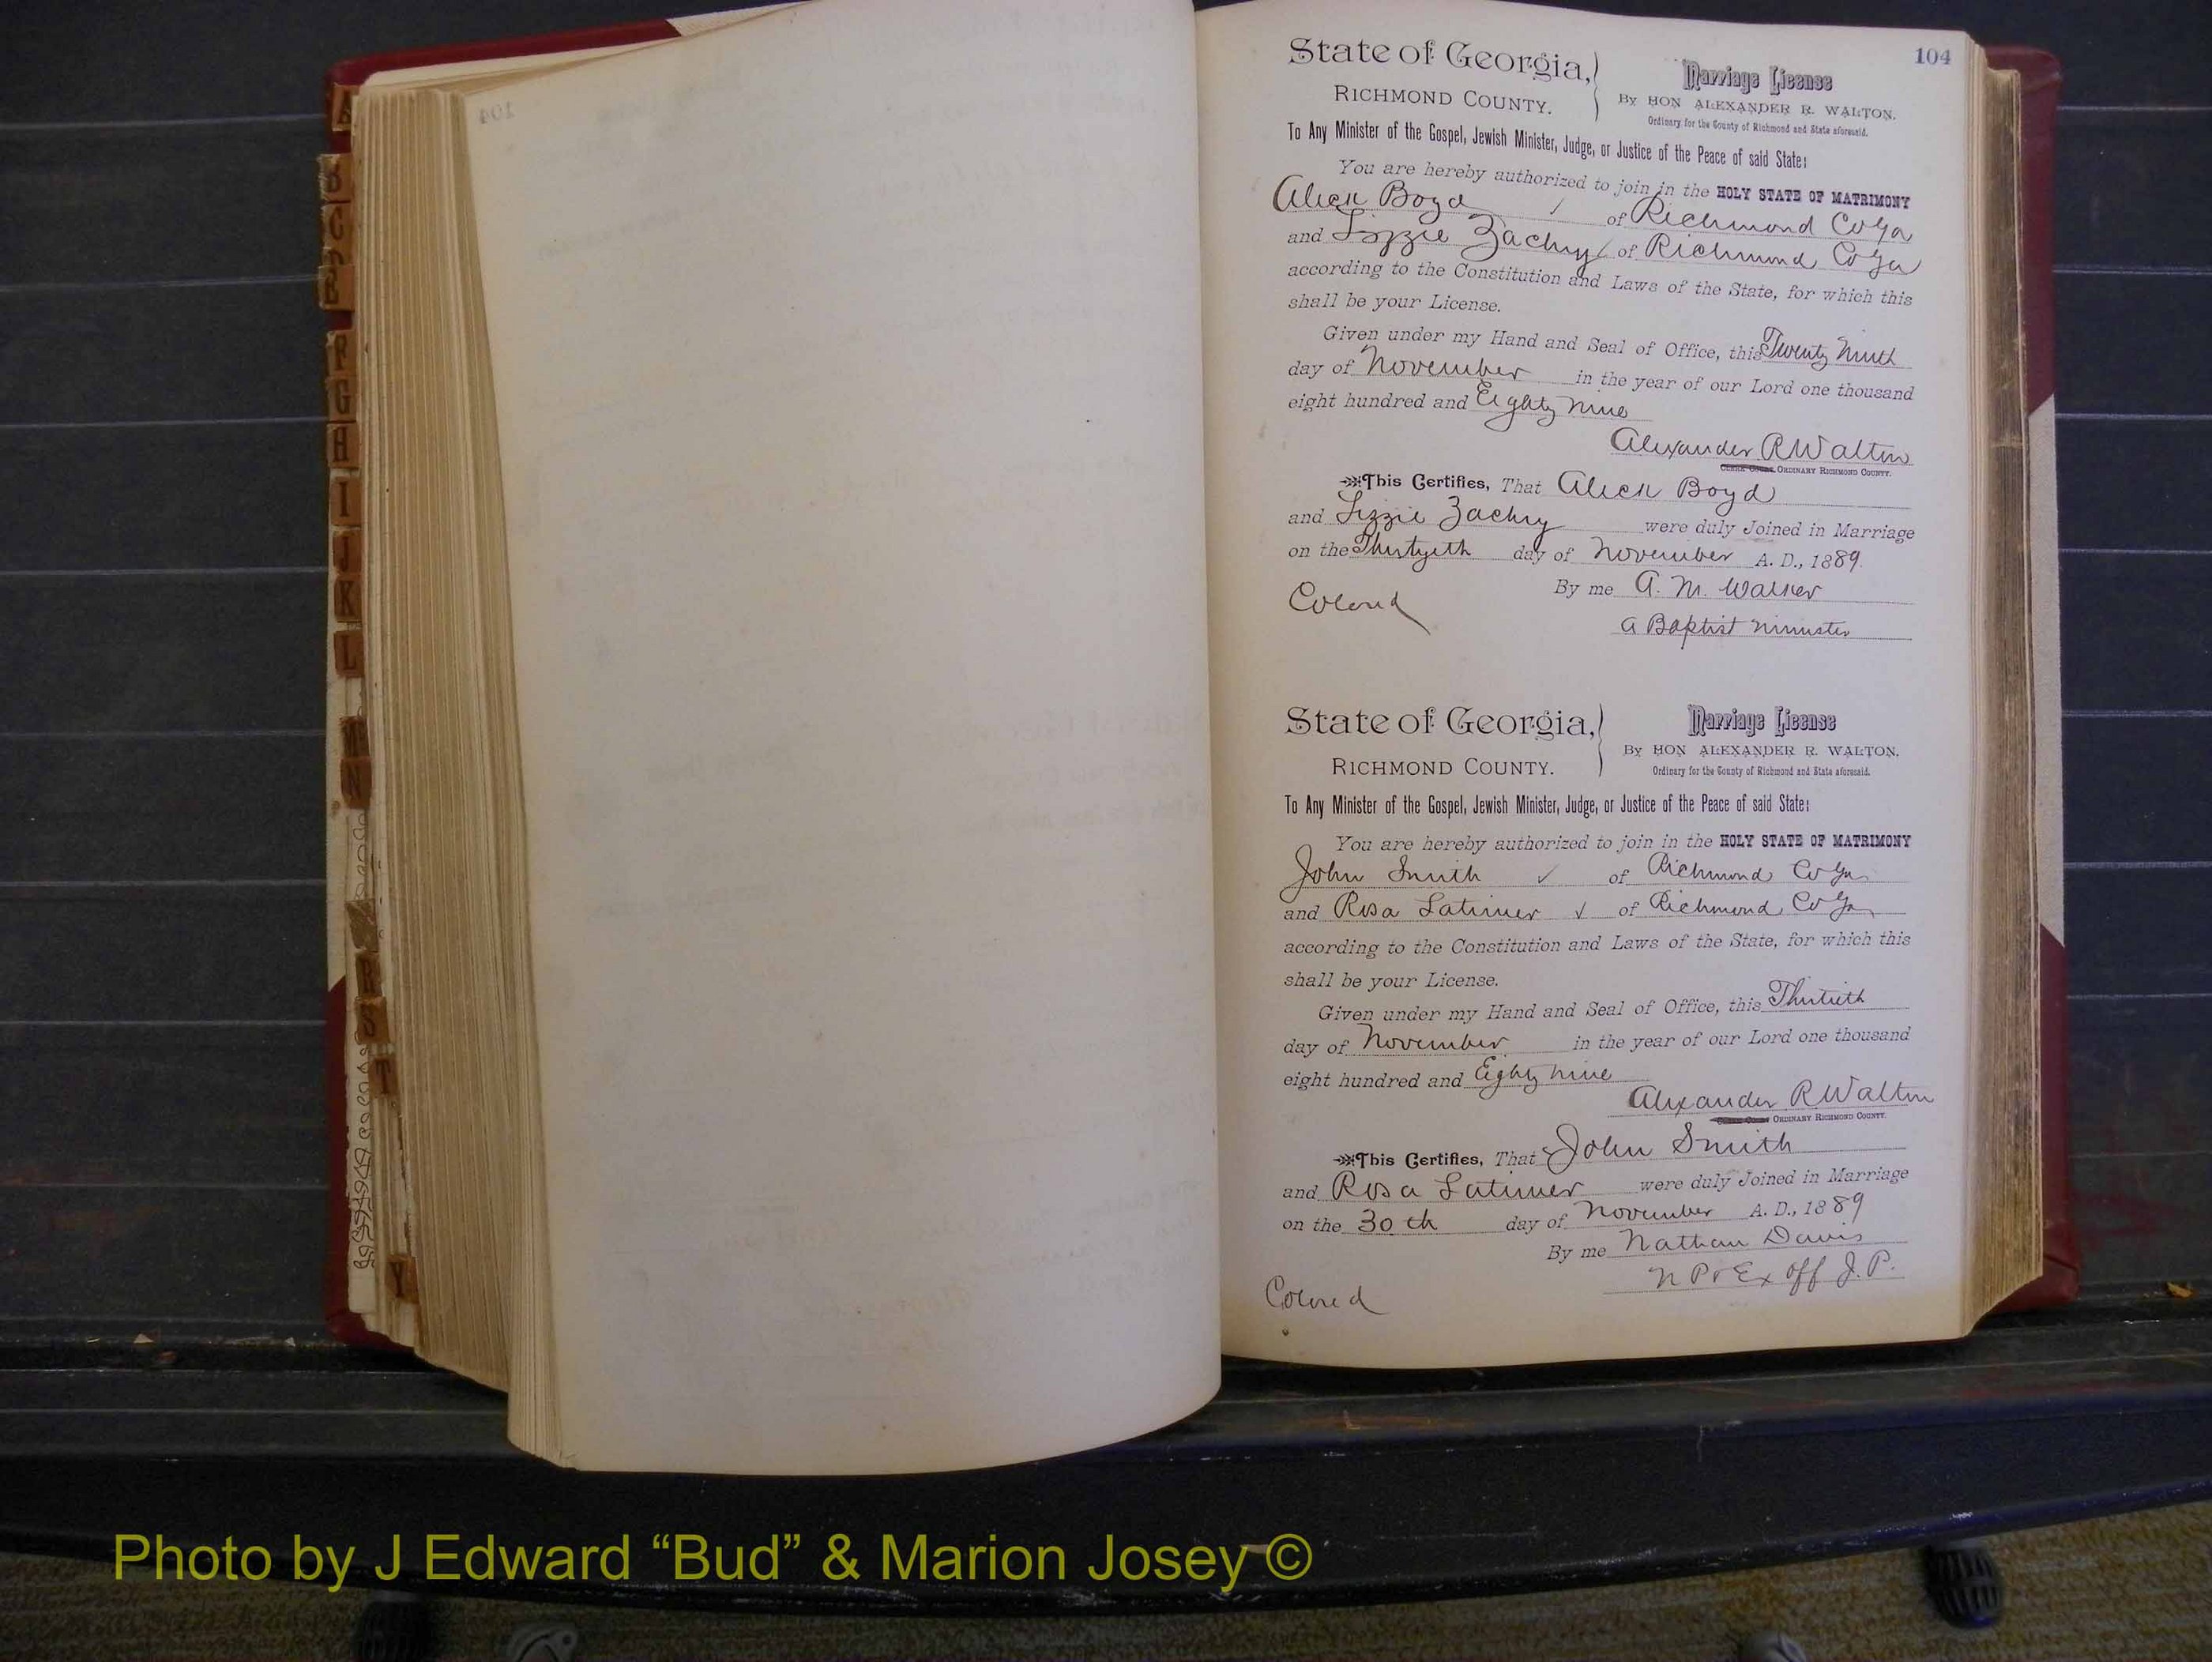 A
B
C
D
E
F
G
H
I
J
K
L
M
N
R
S
T
Y
104
State of Georgia,
RICHMOND COUNTY.
Marriage License
By HON ALEXANDER R. WALTON.
Ordinary for the County of Richmond and State aforesaid.
To Any Minister of the Gospel, Jewish Minister, Judge, or Justice of the Peace of said State:
You are hereby authorized to join in the HOLY STATE OF MATRIMONY
Alick Boyd of Richmond Co Ga
and Lizzie Zachry of Richmond Co Ga
according to the Constitution and Laws of the State, for which this
shall be your License.
Given under my Hand and Seal of Office, this Twenty Ninth
day of November in the year of our Lord one thousand
eight hundred and Eighty Nine
Alexander R Walton
ORDINARY RICHMOND COUNTY.
This Certifies, That Alick Boyd
and Lizzie Zachry were duly Joined in Marriage
on the Thirtyeth day of November A. D., 1889.
By me A. M. Walker
Colored
a Baptist minister
State of Georgia,
RICHMOND COUNTY.
Marriage License
By HON ALEXANDER R. WALTON.
Ordinary for the County of Richmond and State aforesaid.
To Any Minister of the Gospel, Jewish Minister, Judge, or Justice of the Peace of said State:
You are hereby authorized to join in the HOLY STATE OF MATRIMONY
John Smith of Richmond Co Ga
and Rosa Latimer of Richmond Co Ga
according to the Constitution and Laws of the State, for which this
shall be your License.
Given under my Hand and Seal of Office, this Thirtieth
day of November in the year of our Lord one thousand
eight hundred and Eighty nine
Alexander R Walton
ORDINARY RICHMOND COUNTY.
This Certifies, That John Smith
and Rosa Latimer were duly Joined in Marriage
on the 30th day of November A. D., 1889
By me Nathan Davis
N P & Ex off J. P.
Colored
Photo by J Edward “Bud” & Marion Josey ©